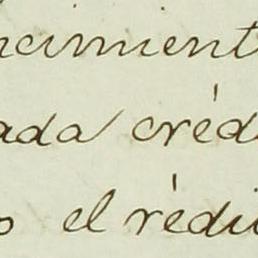 ncimient
ada créd
o el rédi